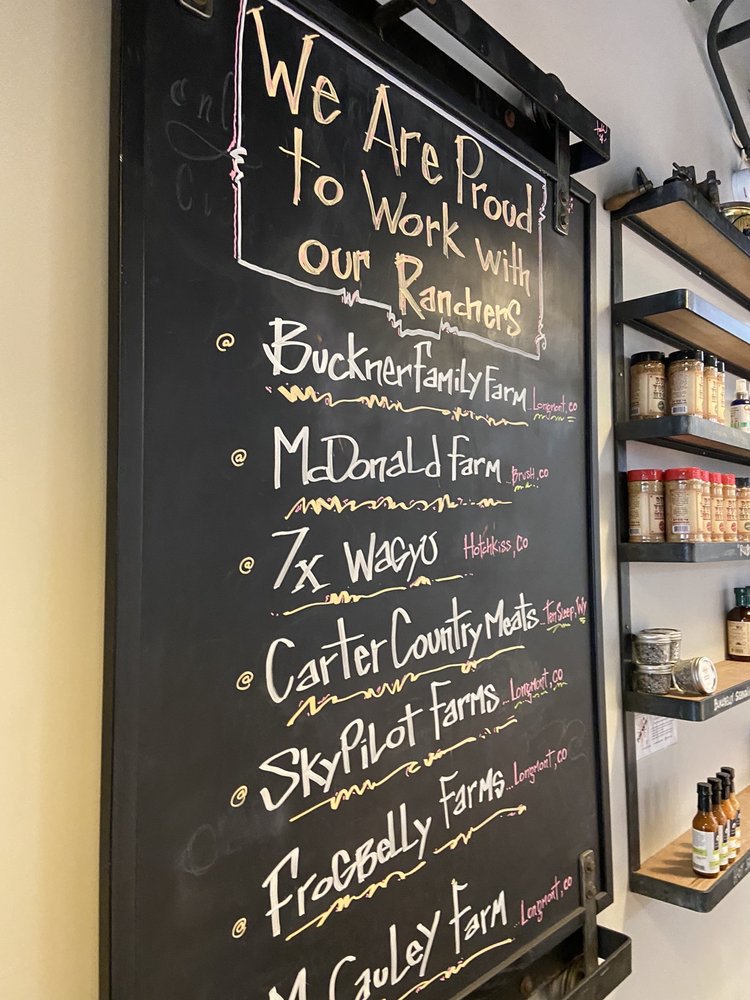 We Are Proud
to Work with
our Ranchers
@ Buckner Family Farm...Longmont, CO
@ McDonald Farm...Brush, CO
@ 7x Wagyu Hotchkiss, CO
@ Carter Country Meats...Ten Sleep, WY
@ SkyPilot Farms...Longmont, CO
@ FrogBelly Farms...Longmont, CO
@ McCauley Farm Longmont, CO